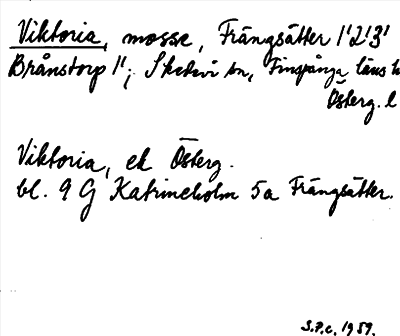 Viktoria, mosse, Frängsätter 1'2'3'
Brånstorp 1'; Skedevi sn, Finspånga läns h
Österg. l
Viktoria, ek Österg.
bl. 9 G Katrineholm 5a Frängsätter.
S.P.e. 1959.